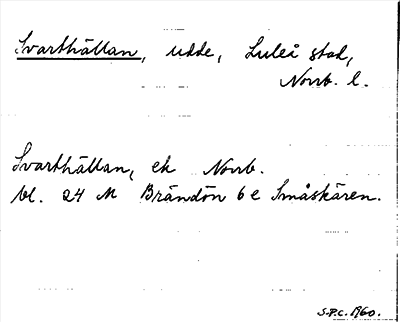 Svarthällan, udde, Luleå stad,
Norrb. l.
Svarthällan, ek Norrb.
bl. 24 M Brändön 6 e Småskären.
S.P.C. 1960.